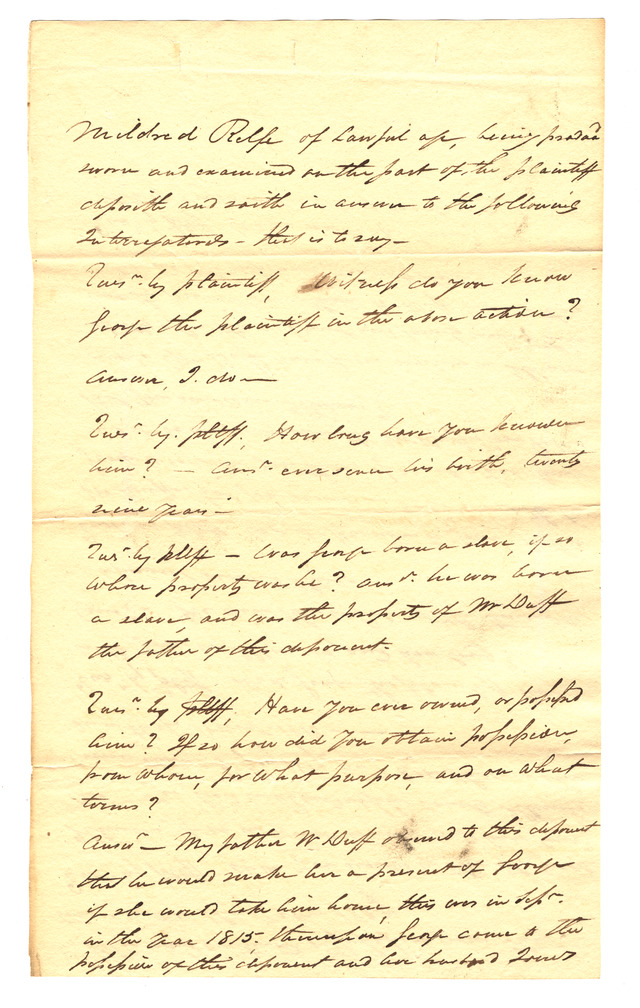 Mildred Relfe of Lawful age, being produced
sworn and examined on the part of the plaintiff
deposith and saith in answer to the following
Interrogatories - that is to say -
Quesn. by plaintiff, Witness do you know
George the plaintiff in the above action?
Answer, I do -
Quesn. by pltff. How long have you known
him? - Ansr. ever since his birth, twenty
nine years -
Quesn. by pltff - Was George born a slave, if so
whose property was he? Ansr. he was born
a slave, and was the property of Wm Duff
the father of this deponent.
Quesn. by pltff, Have you ever owned, or possessed
him? If so how did you obtain possession,
from whom, for what purpose, and on what
terms?
Answr - My father Wm Duff to this deponent
that he would make her a present of George
if she would take him home, this was in Sepr.
in the year 1815, thereupon George came to the
possession of this deponent and her husband James